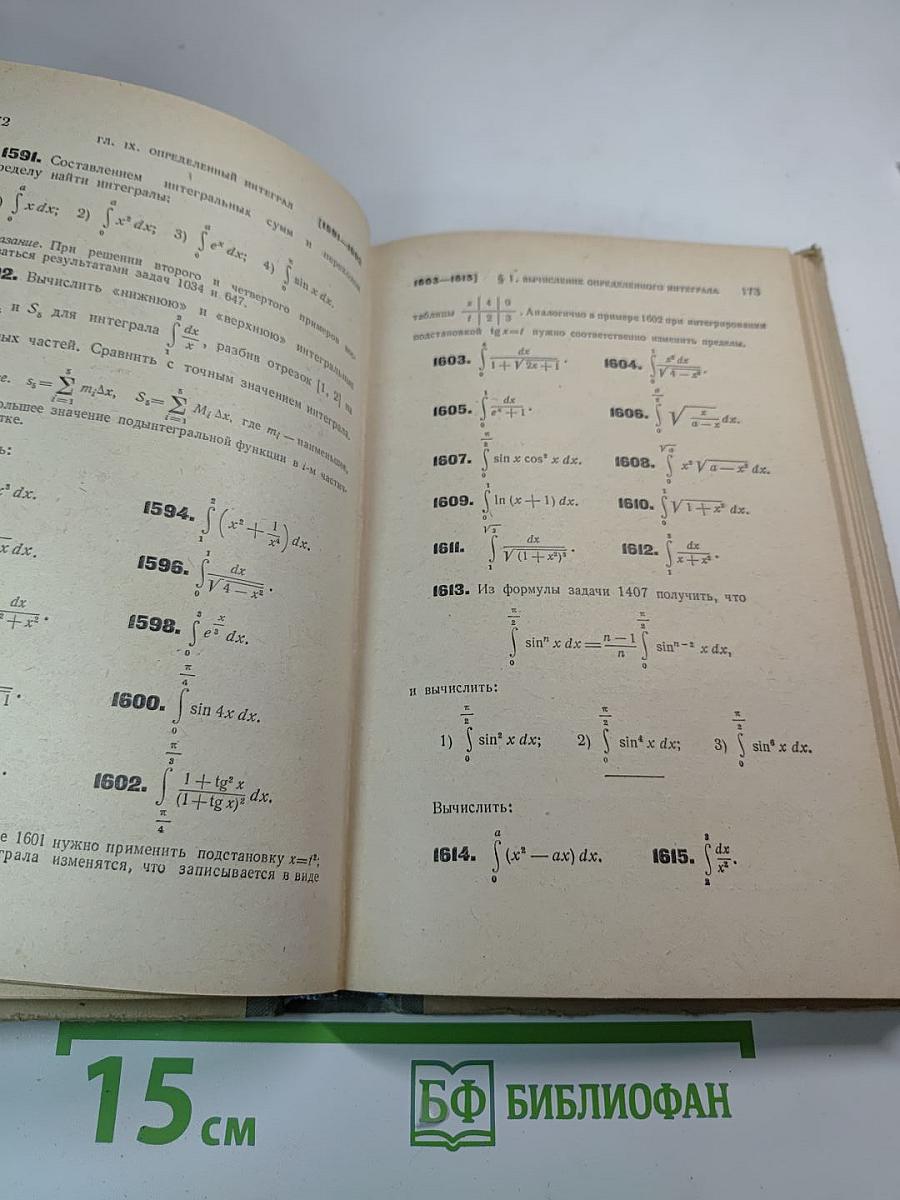 ГЛ. IX. ОПРЕДЕЛЕННЫЙ ИНТЕГРАЛ
1591. Составлением интегральных сумм и переходом
пределу найти интегралы:
∫₀ᵃ x dx; 2) ∫₀ᵃ x² dx; 3) ∫₀ᵃ eˣ dx; 4) ∫₀^π sin x dx.
При решении второго и четвертого примеров
результатами задач 1034 и 647.
Вычислить «нижнюю» и «верхнюю» интегральные
и S₅ для интеграла ∫₁² dx/x, разбив отрезок [1, 2] на
частей. Сравнить с точным значением интеграла.
s₅ = ∑ᵢ₌₁⁵ mᵢ Δx, S₅ = ∑ᵢ₌₁⁵ Mᵢ Δx, где mᵢ — наименьшее,
значение подынтегральной функции в i-м
dx. 1594. ∫₁² (x² + 1/x⁴) dx.
x dx. 1596. ∫₀¹ dx/√(4 − x²).
dx 1598. ∫₀³ e^(x/3) dx.
1600. ∫₀^(π/4) sin 4x dx.
1602. ∫_(π/4)^(π/3) (1 + tg² x)/(1 + tg x)² dx.
1601 нужно применить подстановку x=t²;
изменятся, что записывается в виде
1603—1615] § 1. ВЫЧИСЛЕНИЕ ОПРЕДЕЛЕННОГО ИНТЕГРАЛА 173
таблицы x | 4 | 9 / t | 2 | 3 . Аналогично в примере 1602 при интегрировании
подстановкой tg x=t нужно соответственно изменить пределы.
1603. ∫₀⁴ dx/(1 + √(2x + 1)). 1604. ∫₀¹ x² dx/√(4 − x²).
1605. ∫₀¹ dx/(eˣ + 1). 1606. ∫₀^(a/2) √(x/(a − x)) dx.
1607. ∫₀^(π/2) sin x cos² x dx. 1608. ∫₀^(√a) x² √(a − x²) dx.
1609. ∫₀¹ ln (x + 1) dx. 1610. ∫₀¹ √(1 + x²) dx.
1611. ∫₁^(√3) dx/√((1 + x²)³). 1612. ∫₁³ dx/(x + x²).
1613. Из формулы задачи 1407 получить, что
∫₀^(π/2) sinⁿ x dx = (n−1)/n ∫₀^(π/2) sinⁿ⁻² x dx,
и вычислить:
1) ∫₀^(π/2) sin² x dx; 2) ∫₀^(π/2) sin⁴ x dx; 3) ∫₀^(π/2) sin⁶ x dx.
Вычислить:
1614. ∫₀ᵃ (x² — ax) dx. 1615. ∫₂³ dx/x².
15 см БФ БИБЛИОФАН